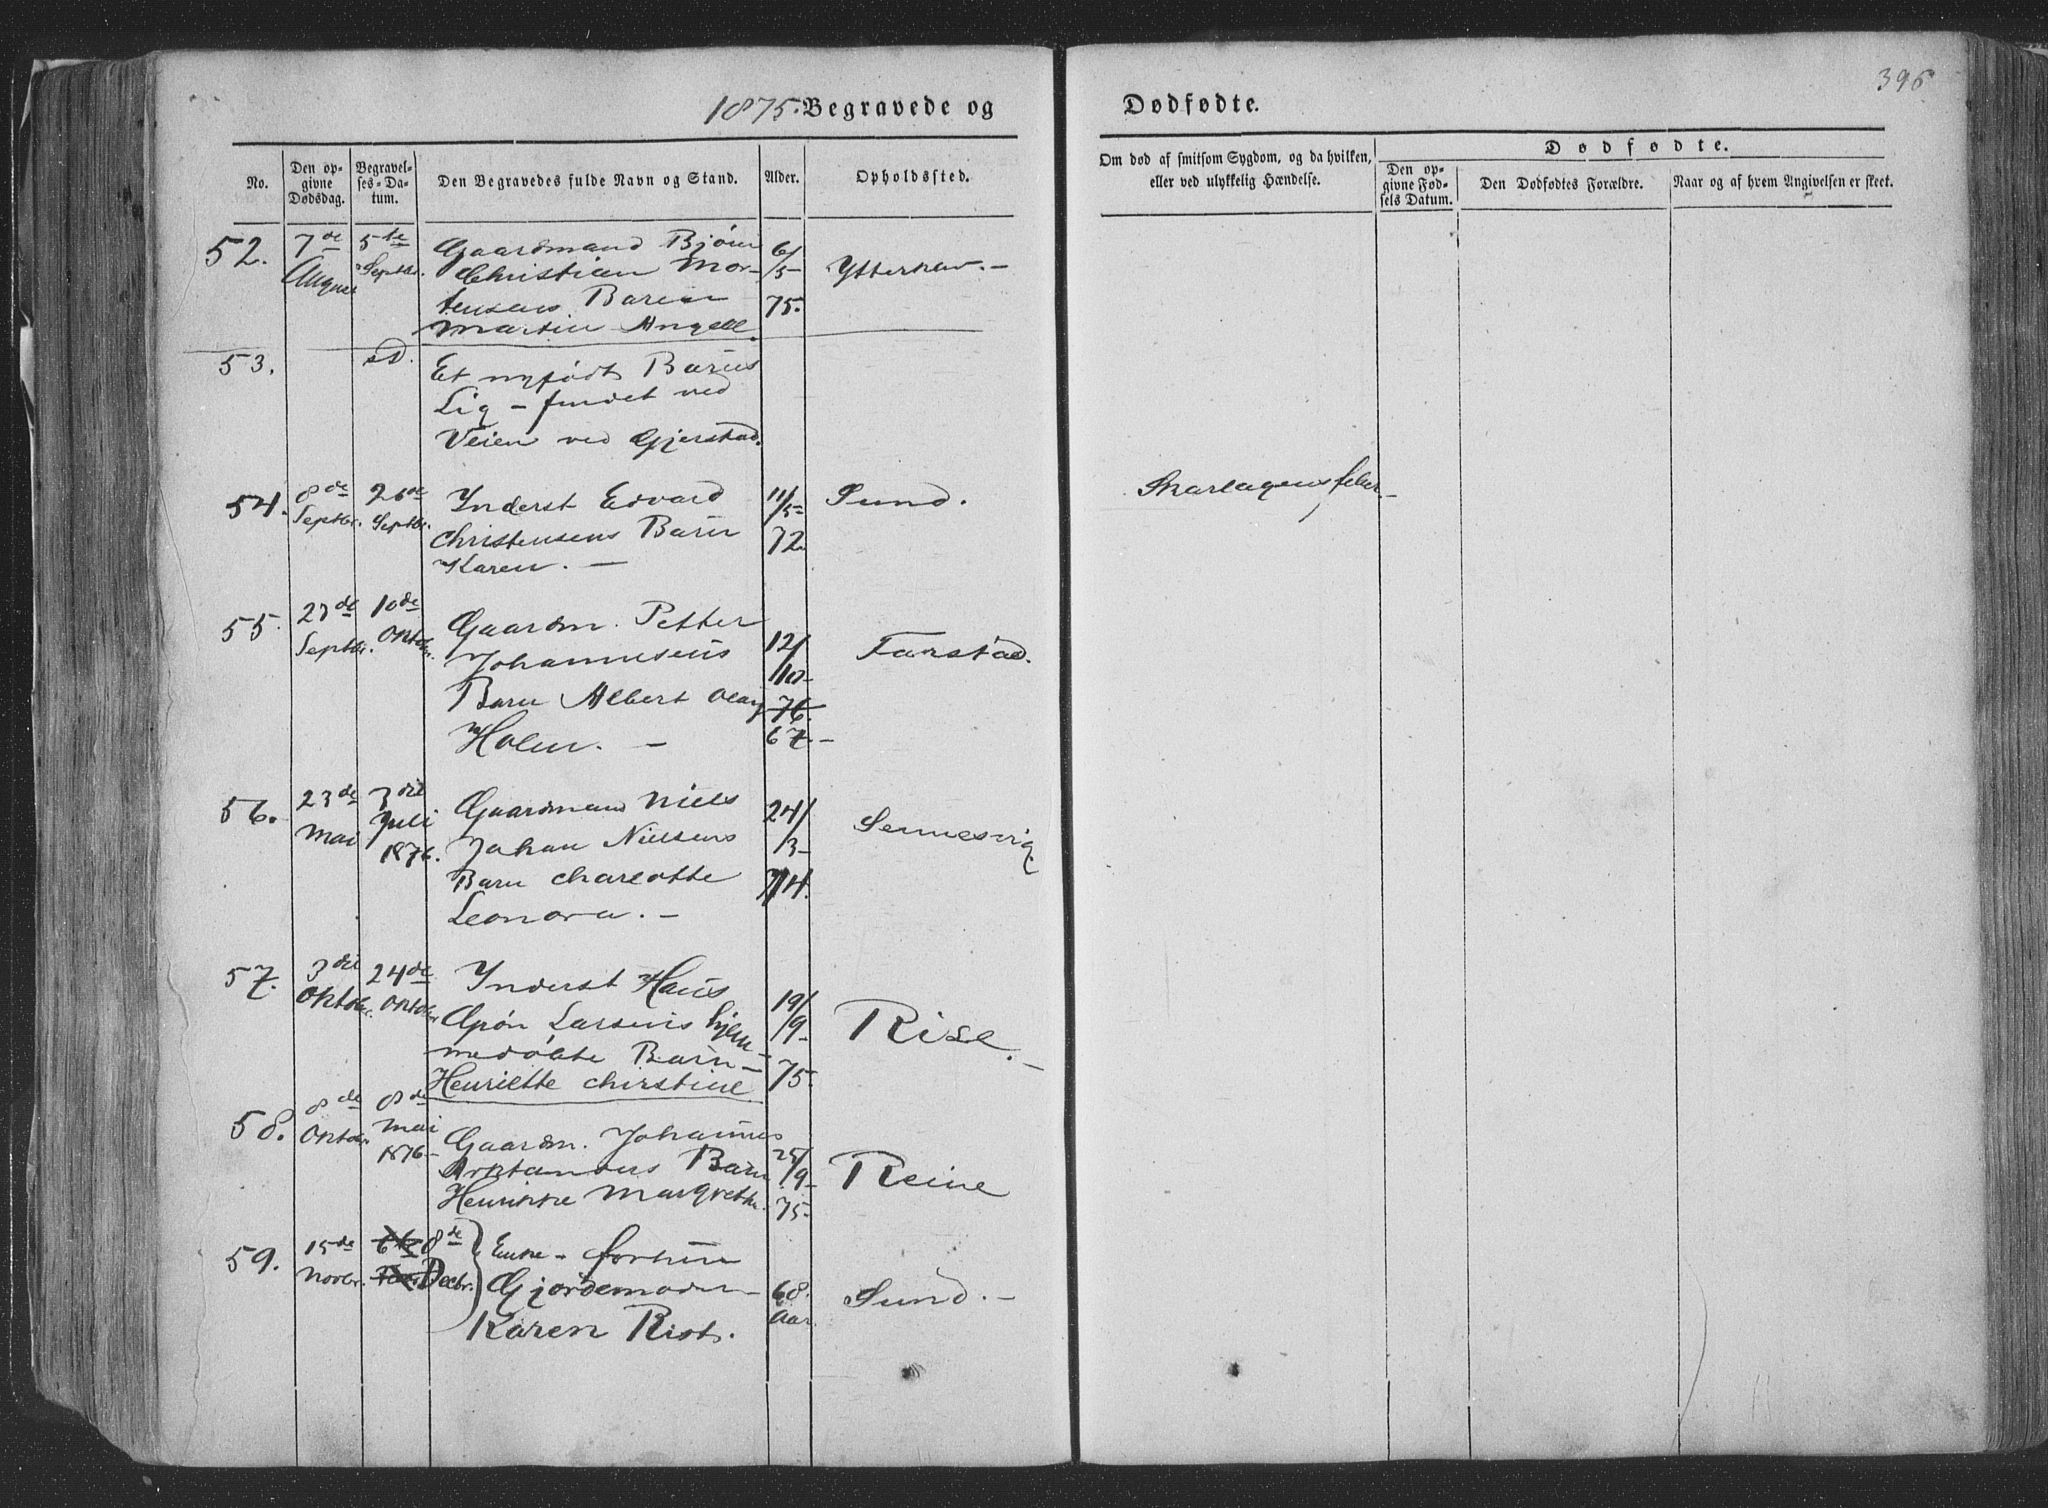 396
1875. Begravede og Dødfødte.
No.
Den opgivne Dødsdag.
Begravelses-Datum.
Den Begravedes fulde Navn og Stand.
Alder.
Opholdssted.
Om død af smitsom Sygdom, og da hvilken,
eller ved ulykkelig Hændelse.
Dødfødte.
Den opgivne Fødsels Datum.
Den Dødfødtes Forældre.
Naar og af hvem Angivelsen er skeet.
52. 7de August 5te Septbr.
Gaardmand Bjørn
Christian Mor-
tensens Barn
Martin Angell
6/5 75.
53. sd.
Et nyfødt Barns
Lig - fundet ved
Veien ved Gjerstad.
54. 8de Septbr. 26de Septbr.
Inderst Edvard
Christensens Barn
Karen. -
11/5- 72
Sund.
Skarlagensfeber
55. 27de Septbr. 10de Oktobr.
Gaardm. Petter
Johannesens
Barn Albert Olay
Holm. -
12/10- 76. 67.-
Farstad.
56. 23de Mai 3die Juli 1876.
Gaardmand Niels
Johan Nielsens
Barn Charlotte
Leonora. -
24/3- 74.
Sennesvig
57. 3die Oktobr. 24de Oktobr.
Inderst Hans
Larsens hjem-
medøbte Barn -
Henriette Christine
19/9- 75.
Rise. -
58. 8de Oktobr. 8de Mai 1876-
Gaardm. Johannes
Barn
Henrikke Margrethe.
25/9- 75-
Reine
59. 15de Novbr. 8de Decbr.
Enke - forhen
Gjordemoder -
Karen Rist.
68. Aar.
Sund. -